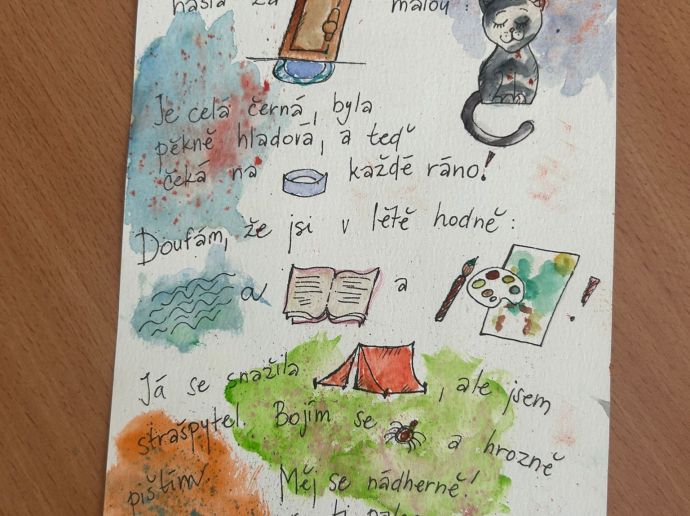 našla za malou
Je celá černá, byla
pěkně hladová, a teď
čeká na každé ráno!
Doufám, že jsi v létě hodně:
a a !
Já se snažila , ale jsem
strašpytel. Bojím se a hrozně
pištím Měj se nádherně!
ti